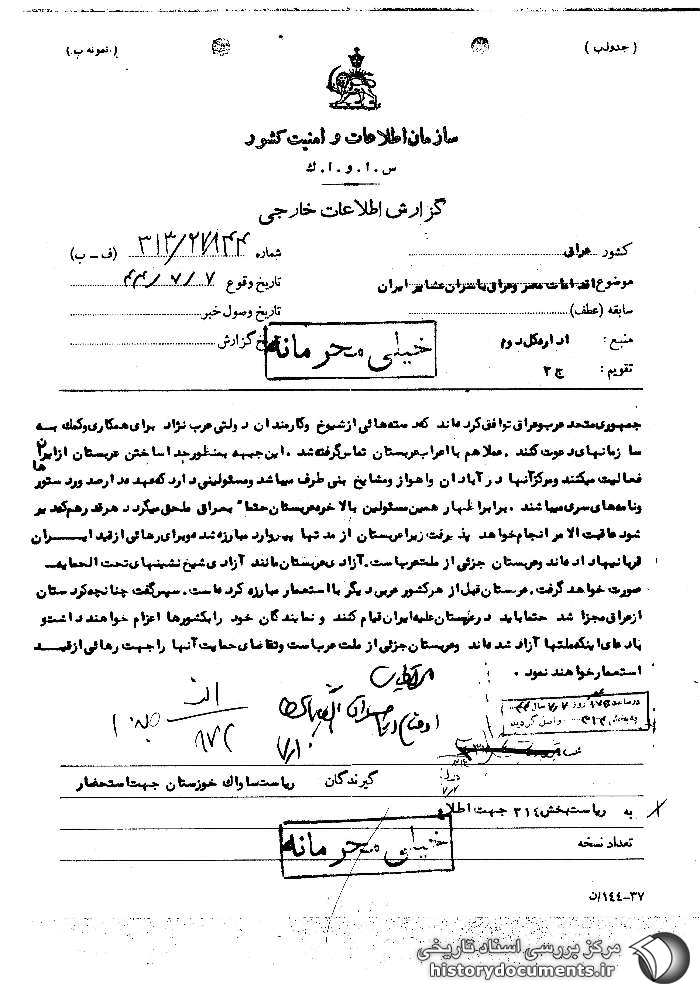 (جدول ب)
(نمونه ب)
سازمان اطلاعات و امنیت کشور
س.ا.و.ا.ك
گزارش اطلاعات خارجی
کشور عراق
شماره ۳۱۳/۲۷۱۴۴ (ف - ب)
موضوع اقدامات مصر وعراق باسران عشایر ایران
تاریخ وقوع ۴۴/۷/۷
سابقه (عطف)
تاریخ وصول خبر
منبع: اداره کل دوم
تاریخ گزارش
خیلی محرمانه
تقویم: ج ۲
جمهوری متحد عرب وعراق توافق کرده اند که دسته هائی از شیوخ وکارمندان دولتی عرب نژاد برای همکاری وکمک به
سازمانهای دعوت کنند . عملا هم با اعراب عربستان تماس گرفته شد . این جبهه بمنظور جدا ساختن عربستان از ایران
فعالیت میکنند ومرکز آنها در آبادان واهواز ومشایخ بنی طرف میباشد ومسئولینی دارد که عهده دار صد ور دستور
ونامه های سری میباشند . برابر اظهار همین مسئولین بالاخره عربستان حتما" بعراق ملحق میگردد هر قدر هم که دیر
شود عاقبت الامر انجام خواهد پذیرفت زیرا عربستان از مدتها پیش وارد مبارزه شده وبرای رهائی از قید ایران
قربانیها داده اند وعربستان جزئی از ملت عرب است. آزادی عربستان مانند آزادی شیخ نشینهای تحت الحمایه
صورت خواهد گرفت. عربستان قبل از هر کشور عربی دیگر با استعمار مبارزه کرده است. سپس گفت چنانچه کردستان
از عراق مجزا شد حتما باید در عربستان علیه ایران قیام کنند و نمایندگان خود را بکشورها اعزام خواهند داشت و
یادهای اینکه ملتها آزاد شده اند وعربستان جزئی از ملت عرب است وتقاضای حمایت آنها را جهت رهائی از قید
استعمار خواهند نمود .
گیرندگان
ریاست ساواك خوزستان جهت استحضار
به ریاست بخش ۳۱۴ جهت اطلاع
خیلی محرمانه
تعداد نسخه
۳۷-۱۴۴/ن
مرکز بررسی اسناد تاریخی
historydocuments.ir